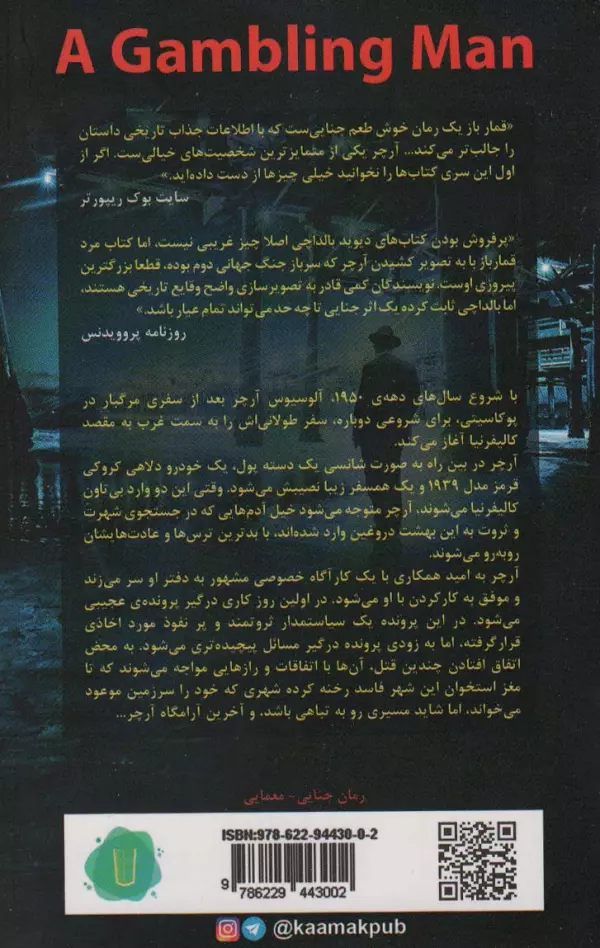 A Gambling Man
«قمار باز یک رمان خوش طعم جنایی‌ست که با اطلاعات جذاب تاریخی داستان
را جالب‌تر می‌کند... آرچر یکی از متمایزترین شخصیت‌های خیالی‌ست. اگر از
اول این سری کتاب‌ها را نخوانید خیلی چیزها از دست داده‌اید.»
سایت بوک ریپورتر
«پرفروش بودن کتاب‌های دیوید بالداچی اصلا چیز غریبی نیست، اما کتاب مرد
قمارباز با به تصویر کشیدن آرچر که سرباز جنگ جهانی دوم بوده، قطعا بزرگترین
پیروزی اوست. نویسندگان کمی قادر به تصویرسازی واضح وقایع تاریخی هستند،
اما بالداچی ثابت کرده یک اثر جنایی تا چه حد می‌تواند تمام عیار باشد.»
روزنامه پروویدنس
با شروع سال‌های دهه‌ی ۱۹۵۰، آلوسیوس آرچر بعد از سفری مرگبار در
پوکاسیتی، برای شروعی دوباره، سفر طولانی‌اش را به سمت غرب به مقصد
کالیفرنیا آغاز می‌کند.
آرچر در بین راه به صورت شانسی یک دسته پول، یک خودرو دلاهی کروکی
قرمز مدل ۱۹۳۹ و یک همسفر زیبا نصیبش می‌شود. وقتی این دو وارد بی‌تاون
کالیفرنیا می‌شوند، آرچر متوجه می‌شود خیل آدم‌هایی که در جستجوی شهرت
و ثروت به این بهشت دروغین وارد شده‌اند، با بدترین ترس‌ها و عادت‌هایشان
روبه‌رو می‌شوند.
آرچر به امید همکاری با یک کارآگاه خصوصی مشهور به دفتر او سر می‌زند
و موفق به کارکردن با او می‌شود. در اولین روز کاری درگیر پرونده‌ی عجیبی
می‌شود. در این پرونده یک سیاستمدار ثروتمند و پر نفوذ مورد اخاذی
قرارگرفته، اما به زودی پرونده درگیر مسائل پیچیده‌تری می‌شود. به محض
اتفاق افتادن چندین قتل، آن‌ها با اتفاقات و رازهایی مواجه می‌شوند که تا
مغز استخوان این شهر فاسد رخنه کرده شهری که خود را سرزمین موعود
می‌خواند، اما شاید مسیری رو به تباهی باشد. و آخرین آرامگاه آرچر...
رمان جنایی - معمایی
ISBN:978-622-94430-0-2
9 786229 443002
@kaamakpub